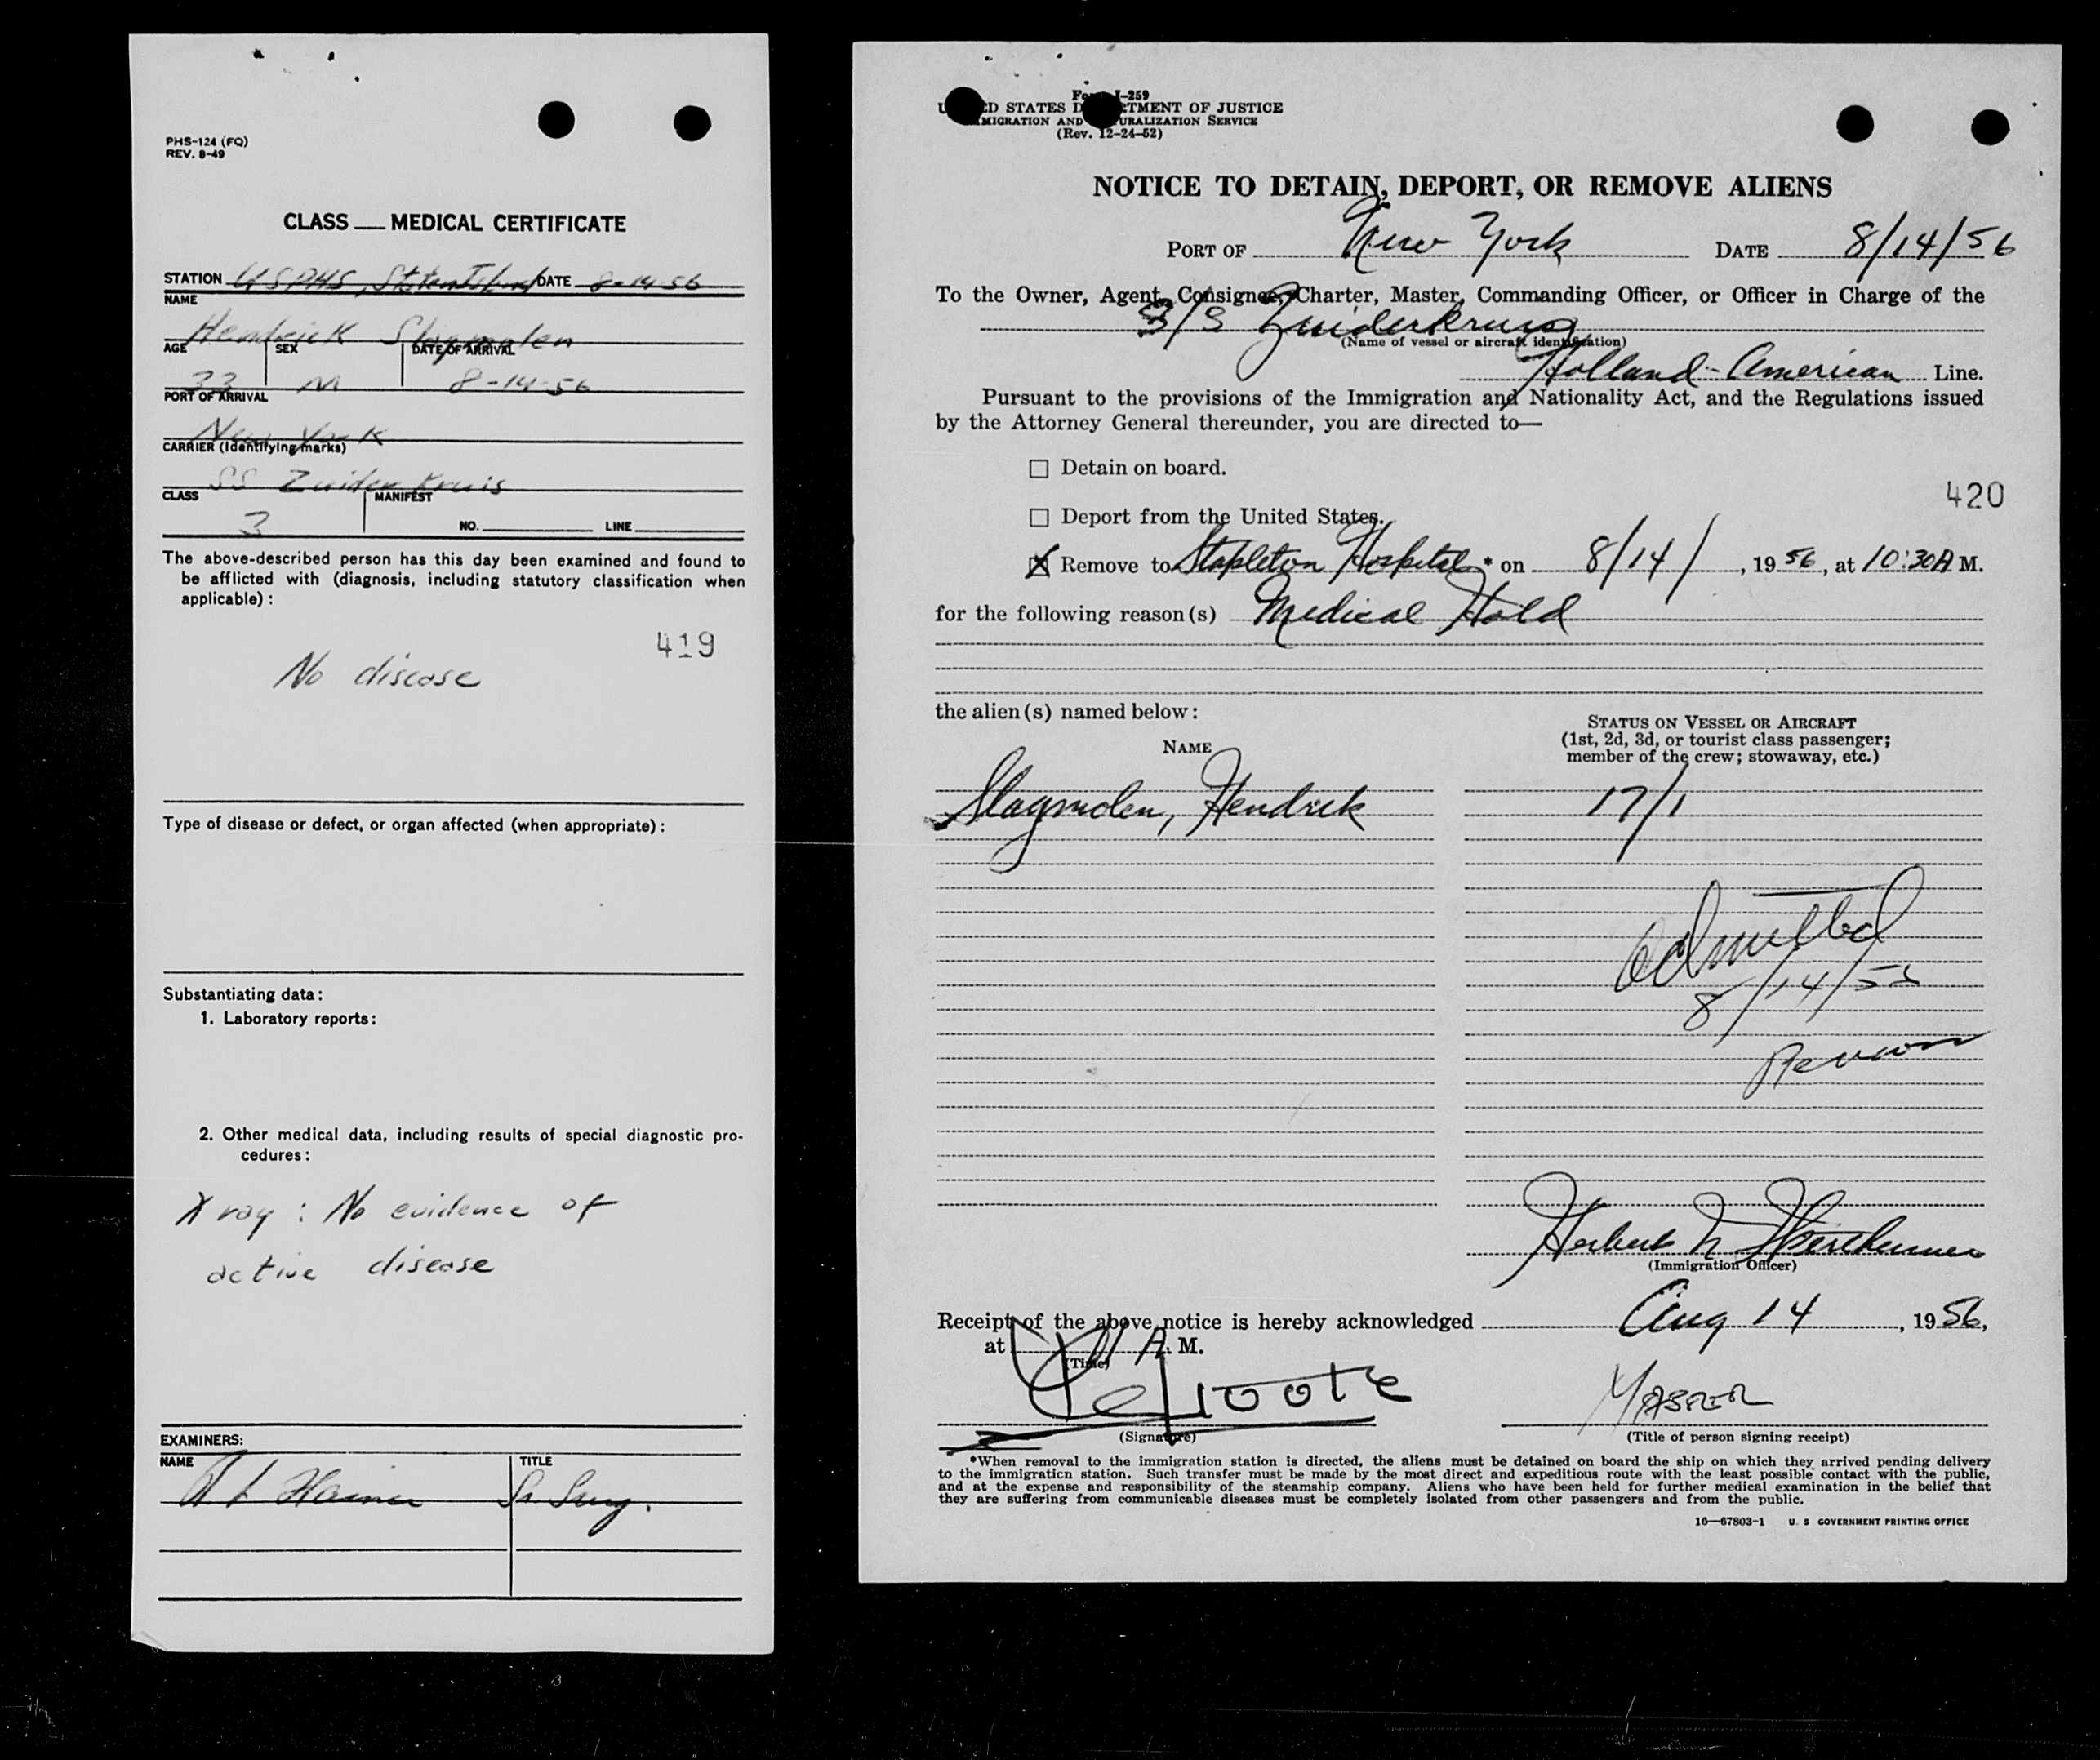 PHS-124 (FQ)
REV. 8-49
CLASS MEDICAL CERTIFICATE
STATION USPHS, Staten Island DATE 8-14-56
NAME
Hendrick Slagmolen
AGE SEX DATE OF ARRIVAL
33 M 8-14-56
PORT OF ARRIVAL
New York
CARRIER (Identifying marks)
SS Zuiderkruis
CLASS MANIFEST
3 NO. LINE
The above-described person has this day been examined and found to
be afflicted with (diagnosis, including statutory classification when
applicable):
419
No disease
Type of disease or defect, or organ affected (when appropriate):
Substantiating data:
1. Laboratory reports:
2. Other medical data, including results of special diagnostic pro-
cedures:
X ray: No evidence of
active disease
EXAMINERS:
NAME TITLE
Sr. Surg.
Form I-259
UNITED STATES DEPARTMENT OF JUSTICE
IMMIGRATION AND NATURALIZATION SERVICE
(Rev. 12-24-52)
NOTICE TO DETAIN, DEPORT, OR REMOVE ALIENS
PORT OF New York DATE 8/14/56
To the Owner, Agent, Consignee, Charter, Master, Commanding Officer, or Officer in Charge of the
S/S Zuiderkruis
(Name of vessel or aircraft identification)
Holland-American Line.
Pursuant to the provisions of the Immigration and Nationality Act, and the Regulations issued
by the Attorney General thereunder, you are directed to—
☐ Detain on board.
420
☐ Deport from the United States.
☒ Remove to Stapleton Hospital * on 8/14/, 1956, at 10:30 A M.
for the following reason(s) Medical Hold
the alien(s) named below:
STATUS ON VESSEL OR AIRCRAFT
NAME
(1st, 2d, 3d, or tourist class passenger;
member of the crew; stowaway, etc.)
Slagmolen, Hendrick 17/1
Admitted
8/14/56
Herbert
(Immigration Officer)
Receipt of the above notice is hereby acknowledged Aug 14, 1956,
at 11 A. M.
(Time)
MASTER
(Signature) (Title of person signing receipt)
*When removal to the immigration station is directed, the aliens must be detained on board the ship on which they arrived pending delivery
to the immigration station. Such transfer must be made by the most direct and expeditious route with the least possible contact with the public,
and at the expense and responsibility of the steamship company. Aliens who have been held for further medical examination in the belief that
they are suffering from communicable diseases must be completely isolated from other passengers and from the public.
16—67803-1 U. S GOVERNMENT PRINTING OFFICE